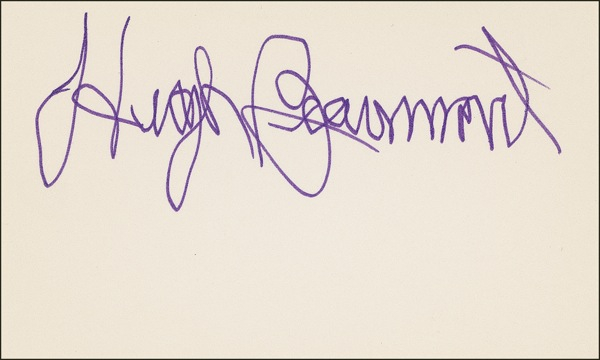 Hugh Beaumont